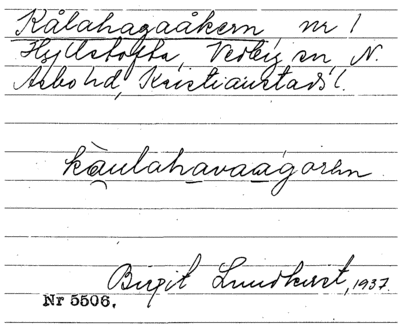 Kålahagaåkern nr 1
Hjälstofta, Vedby sn, N.
Åsbo hd, Kristianstads l.
kàulahavaágoren
Birgit Lundkvist, 1937.
Nr 5506.